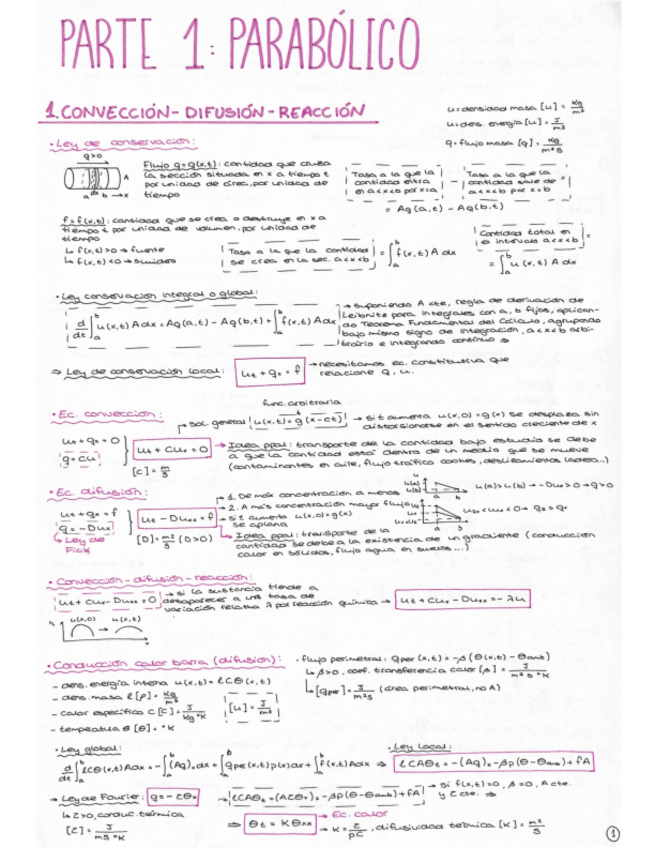 PARTE 1: PARABÓLICO
1. CONVECCIÓN - DIFUSIÓN - REACCIÓN
u = densidad masa [u] = kg/m³
u = dens. energía [u] = J/m³
q = flujo masa [q] = kg/m²s
• Ley de conservación:
q>0
A
a dx b → x
Flujo q = q(x,t): cantidad que cruza
la sección situada en x a tiempo t
por unidad de área, por unidad de
tiempo
Tasa a la que la
cantidad entra
en a<x<b por x=a
-
Tasa a la que la
cantidad sale de
a<x<b por x=b
=
= Aq(a,t) - Aq(b,t)
f = f(x,t): cantidad que se crea o destruye en x a
tiempo t por unidad de volumen, por unidad de
tiempo
↳ f(x,t)>0 → fuente
↳ f(x,t)<0 → sumidero
Tasa a la que la cantidad
se crea en la sec. a<x<b
= ∫ₐᵇ f(x,t) A dx
Cantidad total en
el intervalo a<x<b
=
= ∫ₐᵇ u(x,t) A dx
• Ley conservación integral o global:
d/dt ∫ₐᵇ u(x,t) A dx = Aq(a,t) - Aq(b,t) + ∫ₐᵇ f(x,t) A dx
→ suponiendo A cte, regla de derivación de
Leibnitz para integrales con a, b fijos, aplican-
do Teorema Fundamental del Cálculo, agrupando
bajo mismo signo de integración, a<x<b arbi-
trario e integrando continuo ⇒
⇒ Ley de conservación local: ut + qx = f
→ necesitamos ec. constitutiva que
relacione q, u.
• Ec. convección:
func. arbitraria
→ sol. general u(x,t) = g(x-ct) → si t aumenta u(x,0)=g(x) se desplaza sin
distorsionarse en el sentido creciente de x
ut + qx = 0
q = cu
ut + cux = 0
[c] = m/s
→ Idea ppal: transporte de la cantidad bajo estudio se debe
a que la cantidad está dentro de un medio que se mueve
(contaminantes en aire, flujo tráfico coches, deslizamientos ladera...)
• Ec. difusión:
→ 1. De más concentración a menos
u(a)
u(b)
a b
u(a)>u(b) → -Dux>0 → q>0
→ 2. A más concentración mayor flujo
→ si t aumenta u(x,0)=g(x)
se aplana
a b
ut + qx = f
q = -Dux
↳ Ley de
Fick
ut - Duxx = f
[D] = m²/s (D>0)
→ Idea ppal: transporte de la
cantidad se debe a la existencia de un gradiente (conducción
calor en sólidos, flujo agua en suelos...)
• Convección - difusión - reacción:
ut + cux - Duxx = 0
→ si la sustancia tiende a
desaparecer a una tasa de
variación relativa λ por reacción química → ut + cux - Duxx = -λu
u(x,0) → u(x,t)
x
• Conducción calor barra (difusión):
- dens. energía interna u(x,t) = ρcθ(x,t)
- dens. masa ρ [ρ] = kg/m³
- calor específico c [c] = J/kg °K
- temperatura θ [θ] = °K
[u] = J/m³
• flujo perimetral: qper(x,t) = -β(θ(x,t) - θamb)
↳ β>0, coef. transferencia calor [β] = J/m²s °K
↳ [qper] = J/m²s (área perimetral, no A)
• Ley global:
d/dt ∫ₐᵇ ρcθ(x,t) A dx = -∫ₐᵇ (Aq)x dx + ∫ₐᵇ qper(x,t)p(x)dx + ∫ₐᵇ f(x,t) A dx ⇒
• Ley local:
ρcAθt = -(Aq)x - βp(θ-θamb) + fA
→ Ley de Fourier: q = -τθx
↳ τ>0, conduc. térmica
[τ] = J/ms °K
→ ρcAθt = (Aτθx)x - βp(θ-θamb) + fA
→ si f(x,t)=0, β=0, A cte.
y τ cte. ⇒
⇒ θt = Kθxx
→ Ec. calor
→ K = τ/ρc, difusividad térmica [K] = m²/s
1